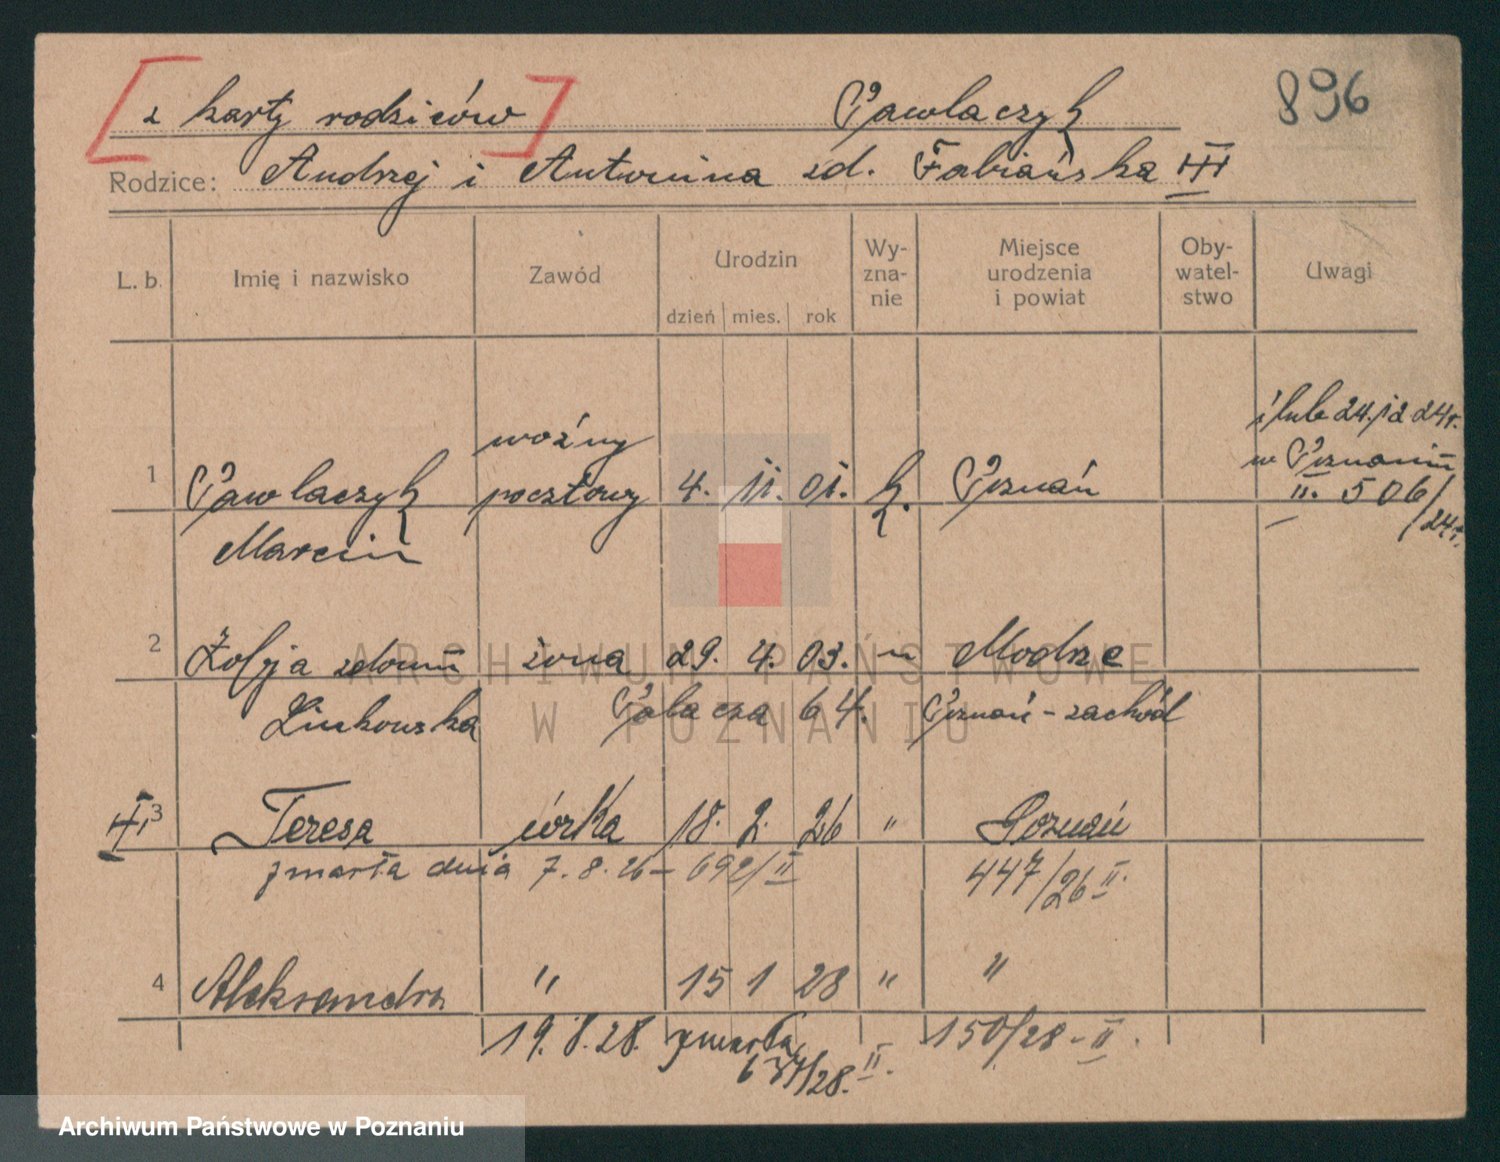 z karty rodziców Pawlaczyk 896
Rodzice: Andrzej i Antonina zd. Fabiańska III
L. b. Imię i nazwisko Zawód Urodzin dzień mies. rok Wy-zna-nie Miejsce urodzenia i powiat Oby-watel-stwo Uwagi
i ślub 24.12 24r.
woźny w Poznaniu
1 Pawlaczyk pocztowy 4. 11. 01. k. Poznań II. 506/24r.
Marcin
2 Zofja z domu żona 29. 4. 03. " Modrze
Linkowska Palacza 64. Poznań-zachód
III 3 Teresa córka 18. 2. 26 " Poznań
zmarła dnia 7. 8. 26 - 692/II 447/26 II.
4 Aleksandra " 15 1 28 " "
19. 8. 28. zmarła 150/28 - II.
637/28. II.
ARCHIWUM PAŃSTWOWE
W POZNANIU
Archiwum Państwowe w Poznaniu